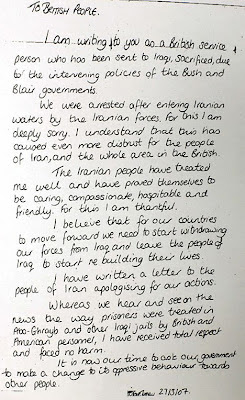 TO BRITISH PEOPLE.
I am writing to you as a British service
person who has been sent to Iraq, sacrificed, due
to the intervening policies of the Bush and
Blair governments.
We were arrested after entering Iranian
waters by the Iranian forces. For this I am
deeply sorry. I understand that this has
caused even more distrust for the people
of Iran, and the whole area in the British.
The Iranian people have treated
me well and have proved themselves to
be caring, compassionate, hospitable and
friendly. For this I am thankful.
I believe that for our countries
to move forward we need to start withdrawing
our forces from Iraq and leave the people of
Iraq to start re building their lives.
I have written a letter to the
people of Iran apologising for our actions.
Whereas we hear and see on the
news the way prisoners were treated in
Abo-Ghrayb and other Iraqi jails by British and
American personnel, I have received total respect
and faced no harm.
It is now our time to ask our government
to make a change to its oppressive behaviour towards
other people.
27/3/07.